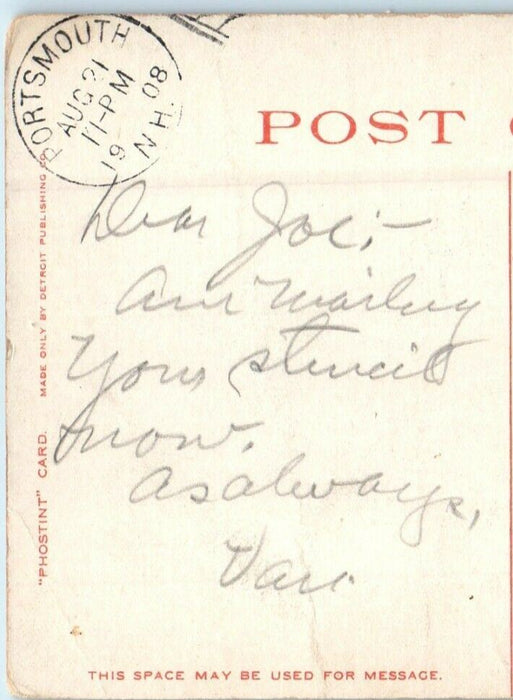 PORTSMOUTH
AUG 21
11-PM
1908
N.H.
POST
Dear Joe:-
Am mailing
your stencil
now.
As always,
Van.
"PHOSTINT" CARD. MADE ONLY BY DETROIT PUBLISHING CO.
THIS SPACE MAY BE USED FOR MESSAGE.